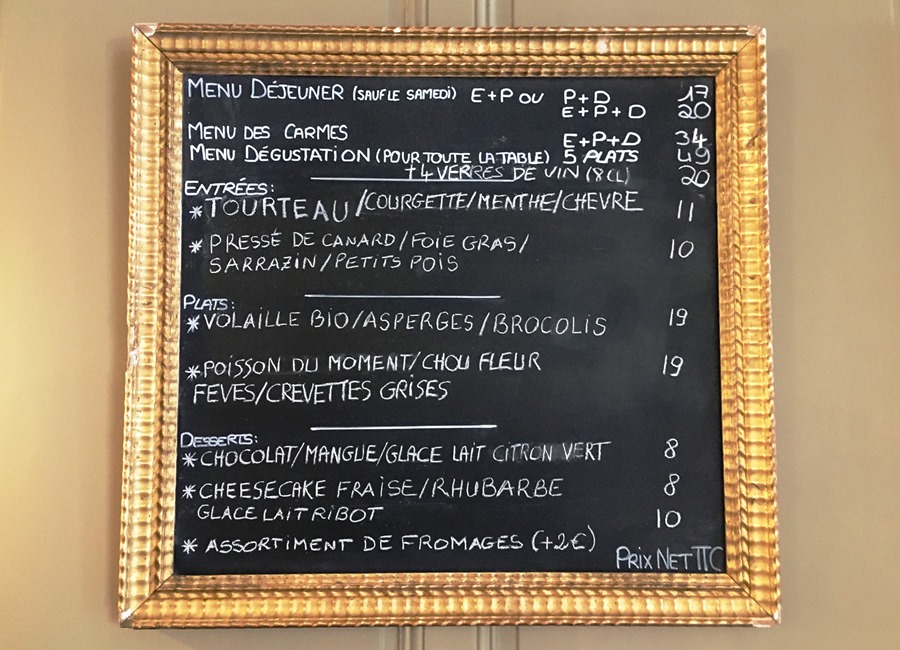 MENU DÉJEUNER (SAUF LE SAMEDI) E+P OU P+D 17
E+P+D 20
MENU DES CARMES E+P+D 34
MENU DÉGUSTATION (POUR TOUTE LA TABLE) 5 PLATS 49
+4 VERRES DE VIN (8CL) 20
ENTRÉES:
*TOURTEAU/COURGETTE/MENTHE/CHEVRE 11
*PRESSÉ DE CANARD/FOIE GRAS/ 10
SARRAZIN/PETITS POIS
PLATS:
*VOLAILLE BIO/ASPERGES/BROCOLIS 19
*POISSON DU MOMENT/CHOU FLEUR 19
FEVES/CREVETTES GRISES
DESSERTS:
*CHOCOLAT/MANGUE/GLACE LAIT CITRON VERT 8
*CHEESECAKE FRAISE/RHUBARBE 8
GLACE LAIT RIBOT 10
* ASSORTIMENT DE FROMAGES (+2€)
PRIX NET TTC